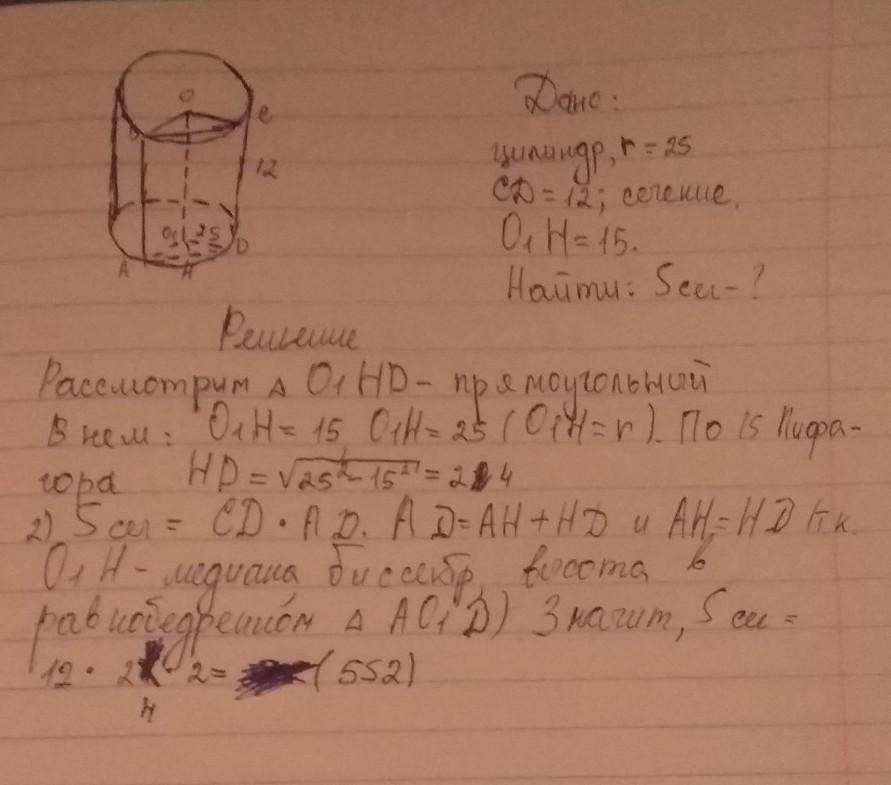 O
C
12
O₁ 25
D
A
H
Дано:
цилиндр, r = 25
CD = 12; сечение.
O₁H = 15.
Найти: Sсеч - ?
Решение
Рассмотрим △ O₁HD - прямоугольный
В нем: O₁H = 15 O₁H = 25 (O₁H = r). По Пифа-
гора HD = √25² - 15² = 24
2) Sсеч = CD · AD. AD = AH + HD и AH = HD т.к.
O₁H - медиана, биссектр, высота в
равнобедренном △ AO₁D) Значит, Sсеч =
12 · 2 · 2 = (552)
4